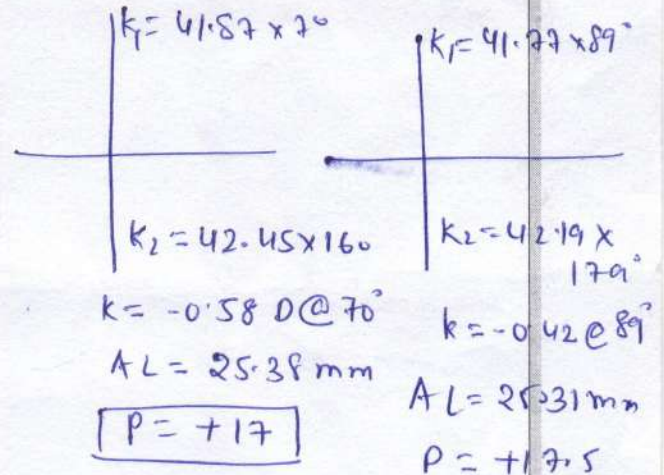 K₁= 41.87 x 70
K₂ = 42.45X160
K= -0.58 D@70°
AL= 25.38 mm
P= +17
K₁= 41.77 x89°
K₂= 42.19 X
179°
k= -0.42@89°
AL= 25.31mm
P= +17.5